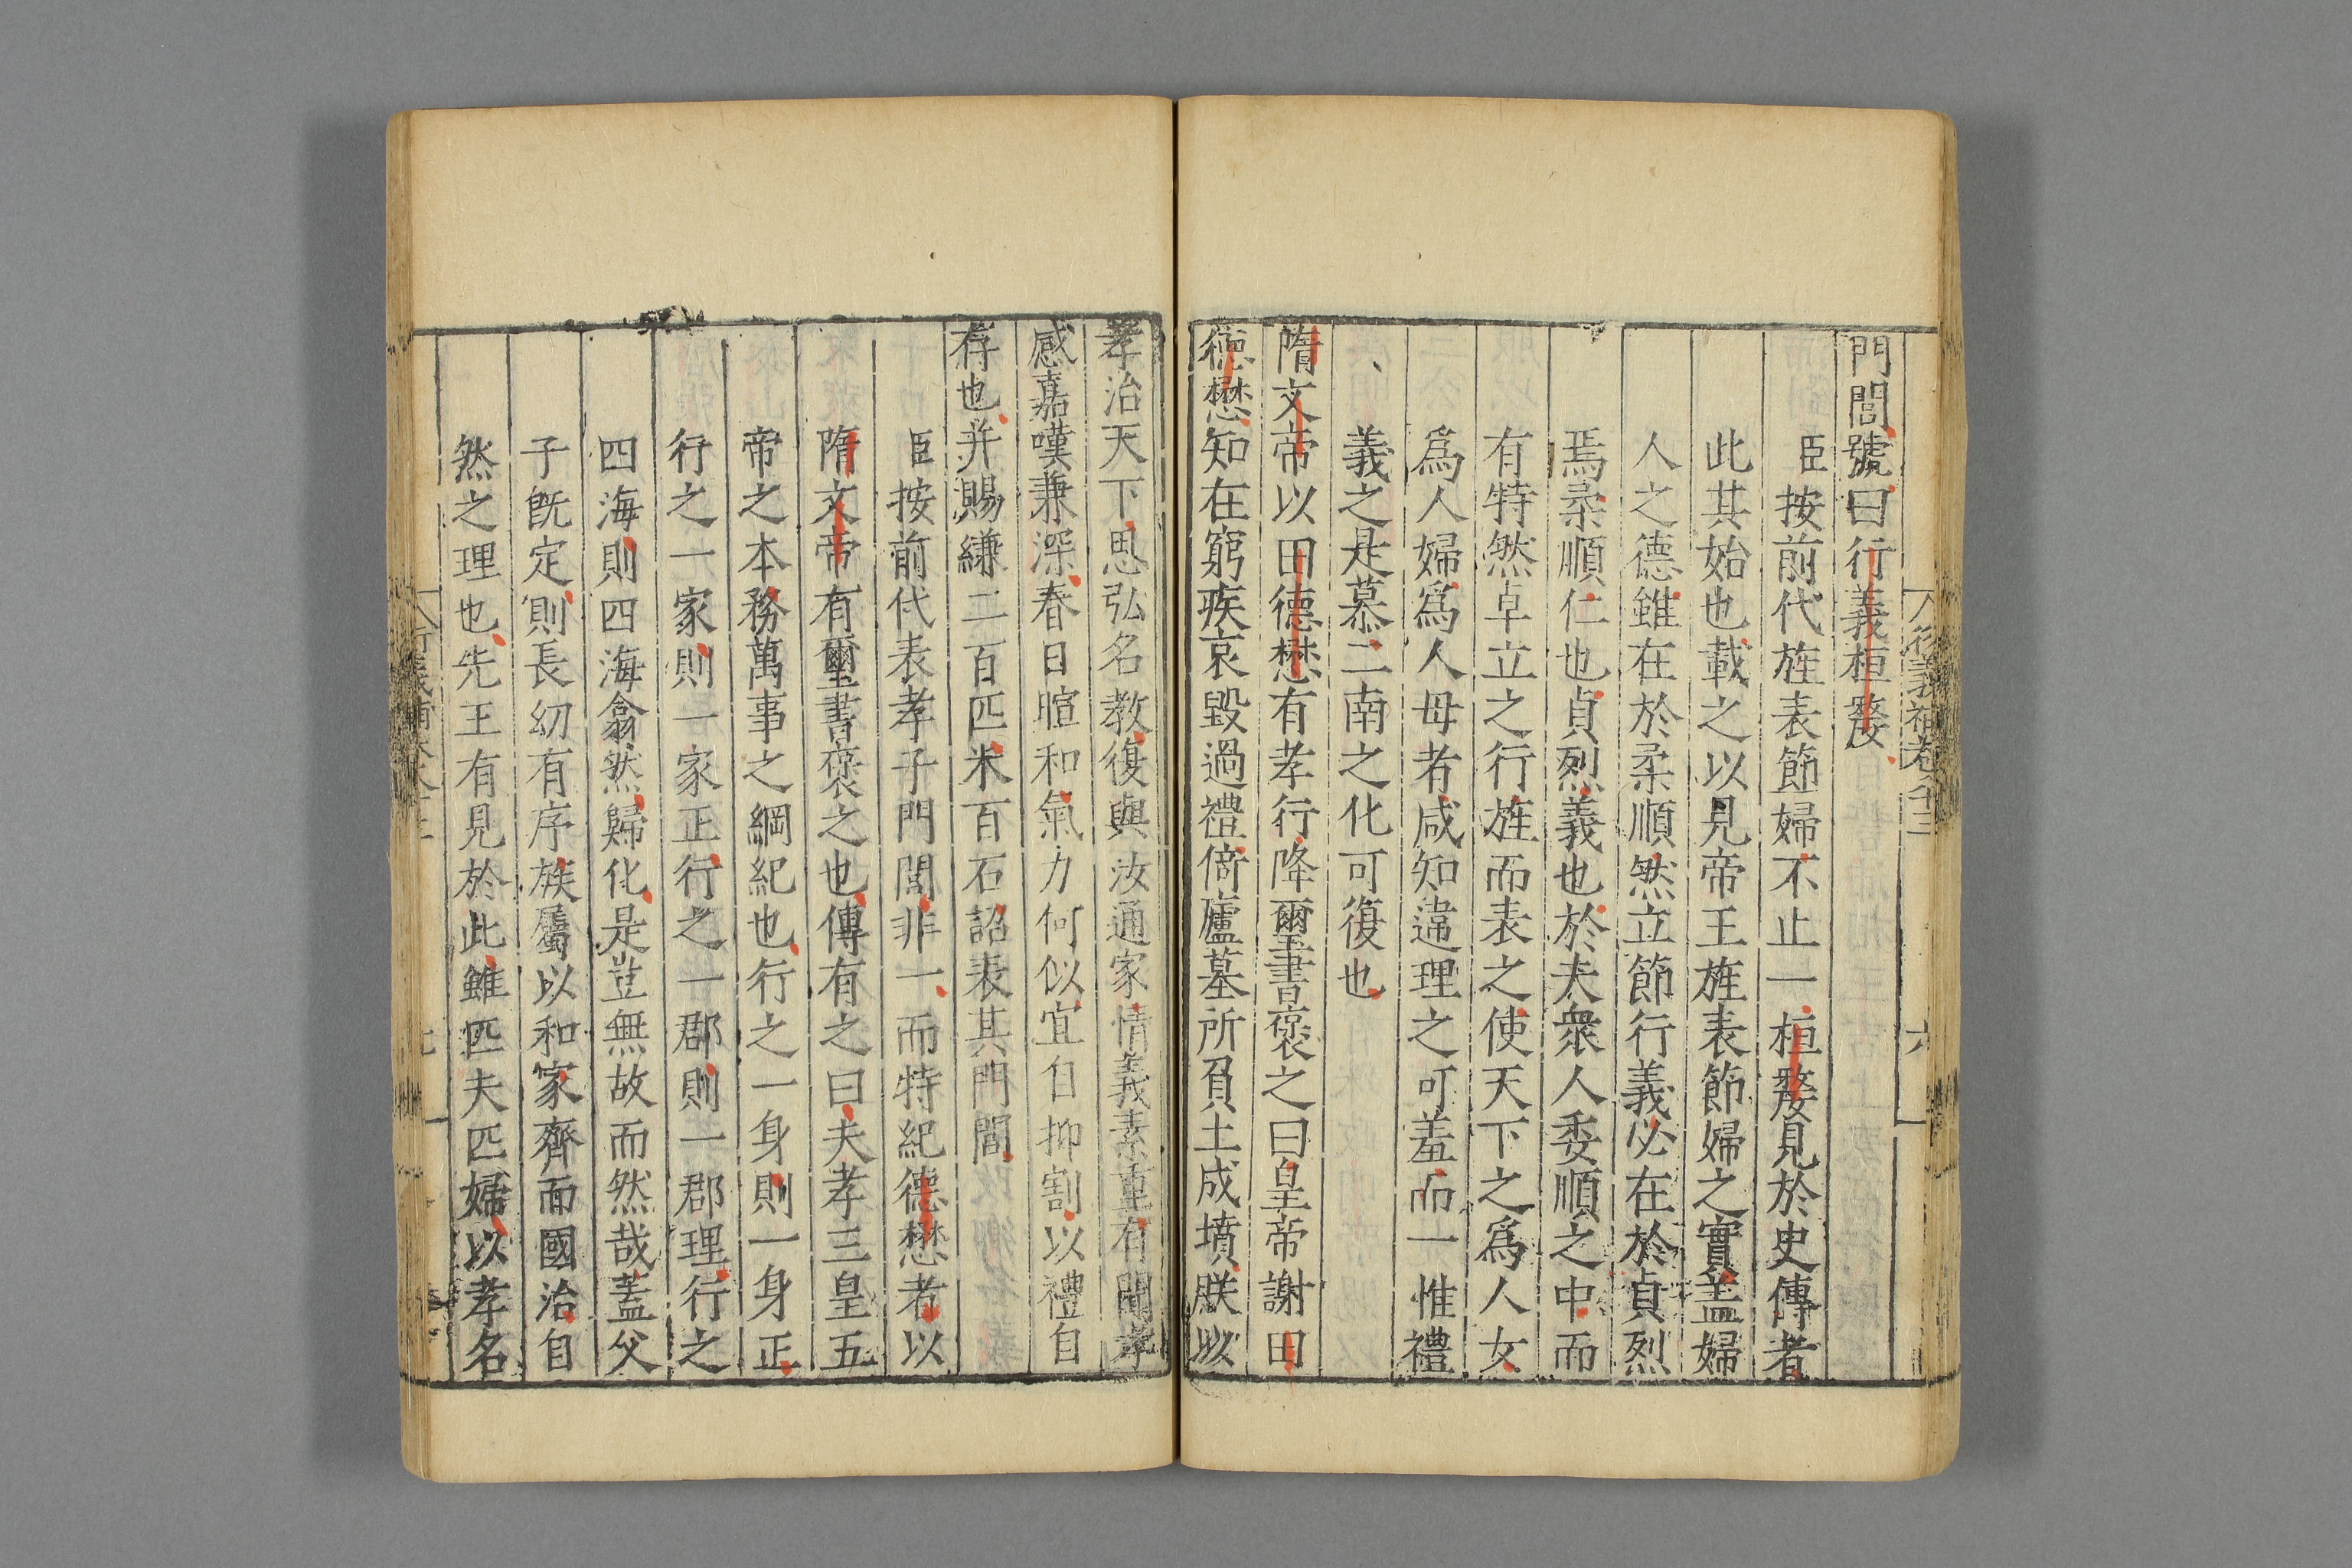 門閭號曰行義桓嫠
臣按前代旌表節婦不止一桓嫠見於史傳者
此其始也載之以見帝王旌表節婦之實蓋婦
人之德雖在於柔順然立節行義必在於貞烈
焉柔順仁也貞烈義也於夫衆人委順之中而
有特然卓立之行旌而表之使天下之爲人女
爲人婦爲人母者咸知違理之可羞而一惟禮
義之是慕二南之化可復也
隋文帝以田德懋有孝行降璽書褒之曰皇帝謝田
德懋知在窮疾哀毀過禮倚廬墓所負土成墳朕以
孝治天下思弘名教復與汝通家情義素重有聞孝
感嘉嘆兼深春日暄和氣力何似宜自抑割以禮自
存也并賜縑二百匹米百石詔表其門閭
臣按前代表孝子門閭非一而特紀德懋者以
隋文帝有璽書褒之也傳有之曰夫孝三皇五
帝之本務萬事之綱紀也行之一身則一身正
行之一家則一家正行之一郡則一郡理行之
四海則四海翕然歸化是豈無故而然哉蓋父
子旣定則長幼有序族屬以和家齊而國治自
然之理也先王有見於此雖匹夫匹婦以孝名